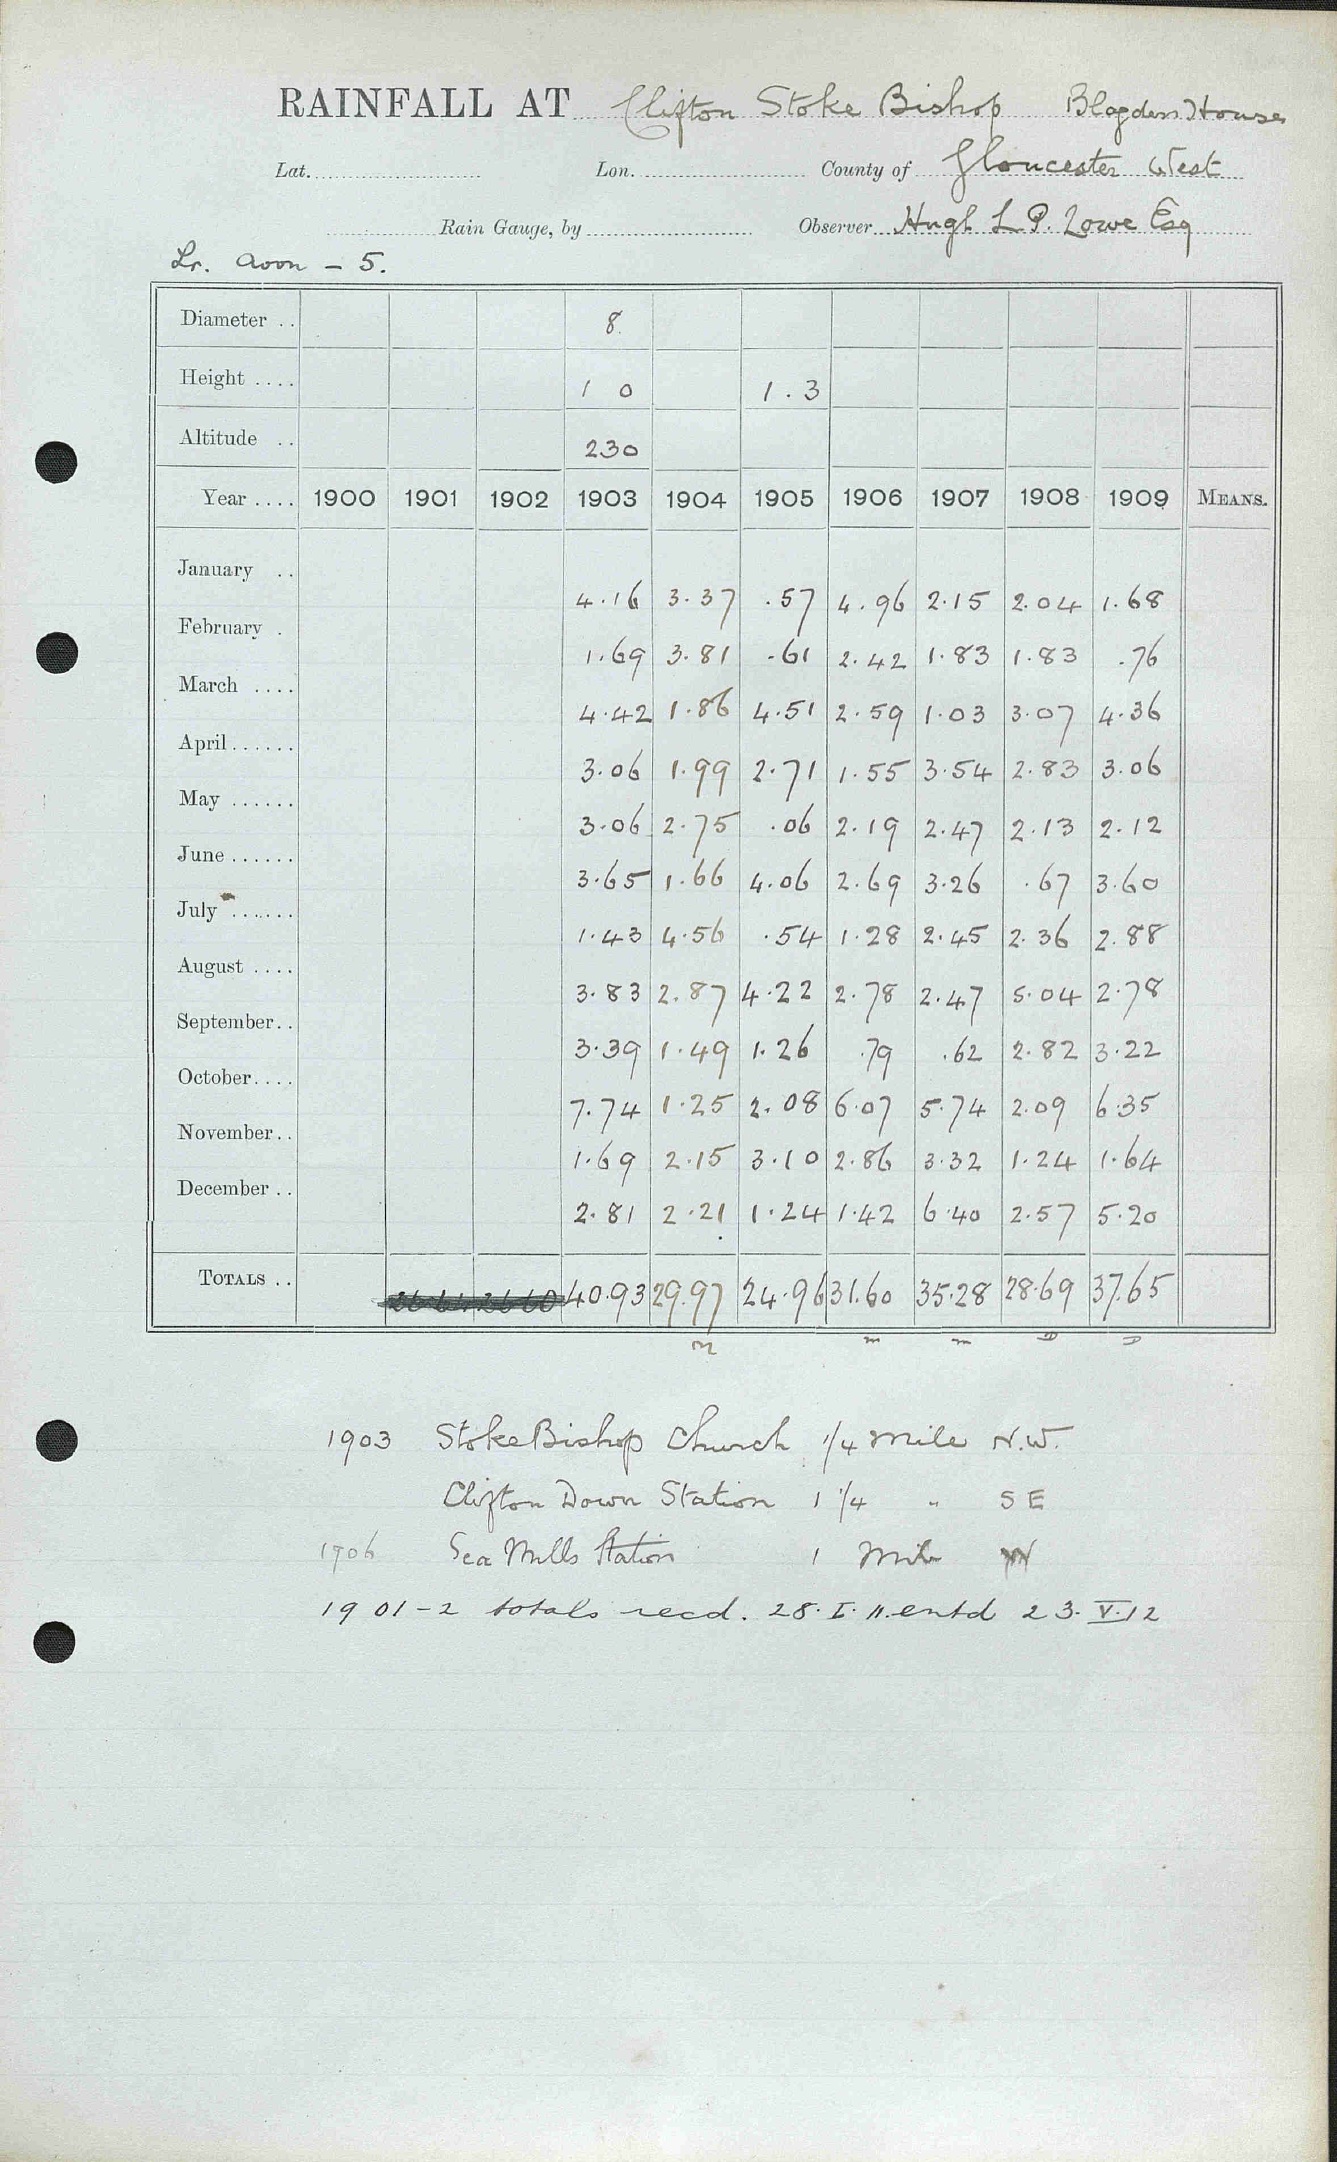 RAINFALL AT Clifton Stoke Bishop Blagdon House
Lat. Lon. County of Gloucester West
Rain Gauge, by Observer Hugh L P. Lowe Esq
Lr. Avon - 5.
Diameter .. 8
Height .... 1 0 1.3
Altitude .. 230
Year .... 1900 1901 1902 1903 1904 1905 1906 1907 1908 1909 MEANS.
January .. 4.16 3.37 .57 4.96 2.15 2.04 1.68
February . 1.69 3.81 .61 2.42 1.83 1.83 .76
March .... 4.42 1.86 4.51 2.59 1.03 3.07 4.36
April...... 3.06 1.99 2.71 1.55 3.54 2.83 3.06
May ...... 3.06 2.75 .06 2.19 2.47 2.13 2.12
June...... 3.65 1.66 4.06 2.69 3.26 .67 3.60
July ...... 1.43 4.56 .54 1.28 2.45 2.36 2.88
August .... 3.83 2.87 4.22 2.78 2.47 5.04 2.78
September.. 3.39 1.49 1.26 .79 .62 2.82 3.22
October.... 7.74 1.25 2.08 6.07 5.74 2.09 6.35
November.. 1.69 2.15 3.10 2.86 3.32 1.24 1.64
December .. 2.81 2.21 1.24 1.42 6.40 2.57 5.20
TOTALS .. 40.93 29.97 24.96 31.60 35.28 28.69 37.65
m m m D D
1903 Stoke Bishop Church 1/4 Mile N.W.
Clifton Down Station 1 1/4 " S E
1906 Sea Mills Station 1 Mile W
1901-2 totals recd. 28.I.11. entd 23.V.12